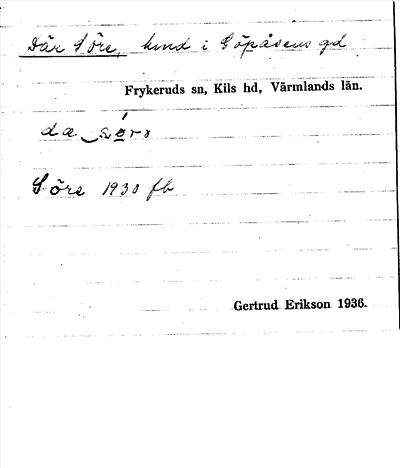 Där Söre, hmd i Göpåsens gd
Frykeruds sn, Kils hd, Värmlands län.
Söre 1930 fb
Gertrud Erikson 1936.